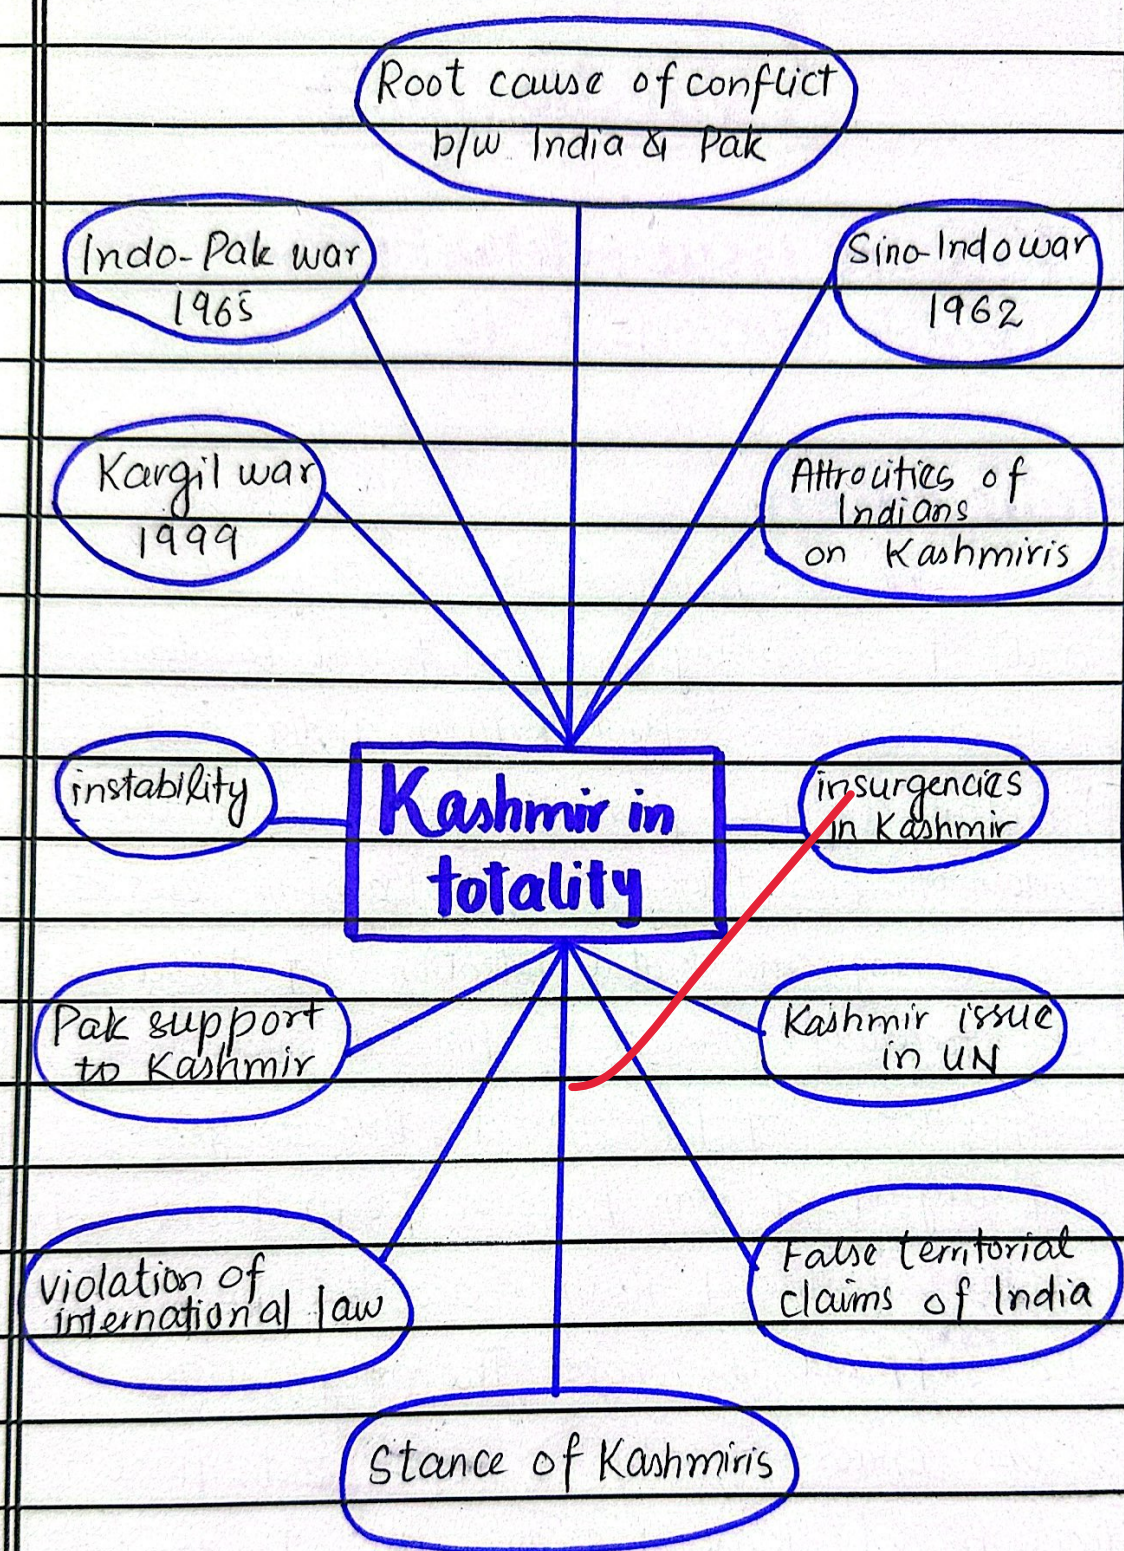 Root cause of conflict
b/w India & Pak
Indo-Pak war
1965
Sino-Indo war
1962
Kargil war
1999
Attrocities of
Indians
on Kashmiris
instability
Kashmir in
totality
insurgencies
in Kashmir
Pak support
to Kashmir
Kashmir issue
in UN
violation of
international law
False territorial
claims of India
Stance of Kashmiris